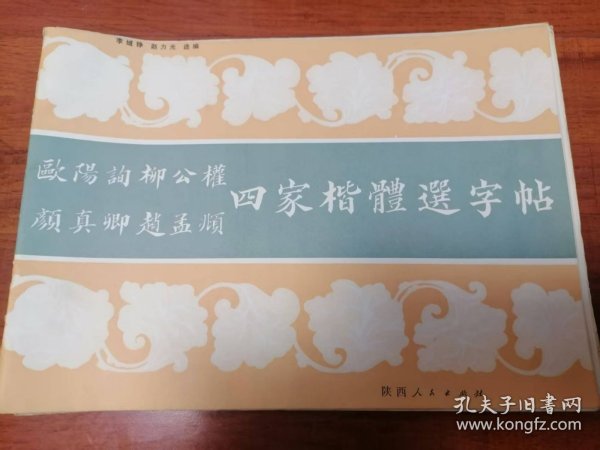 李域铮 赵力光 选编
歐陽詢柳公權
顏真卿趙孟頫
四家楷體選字帖
陕西人民出版社
孔夫子旧书网
www.kongfz.com